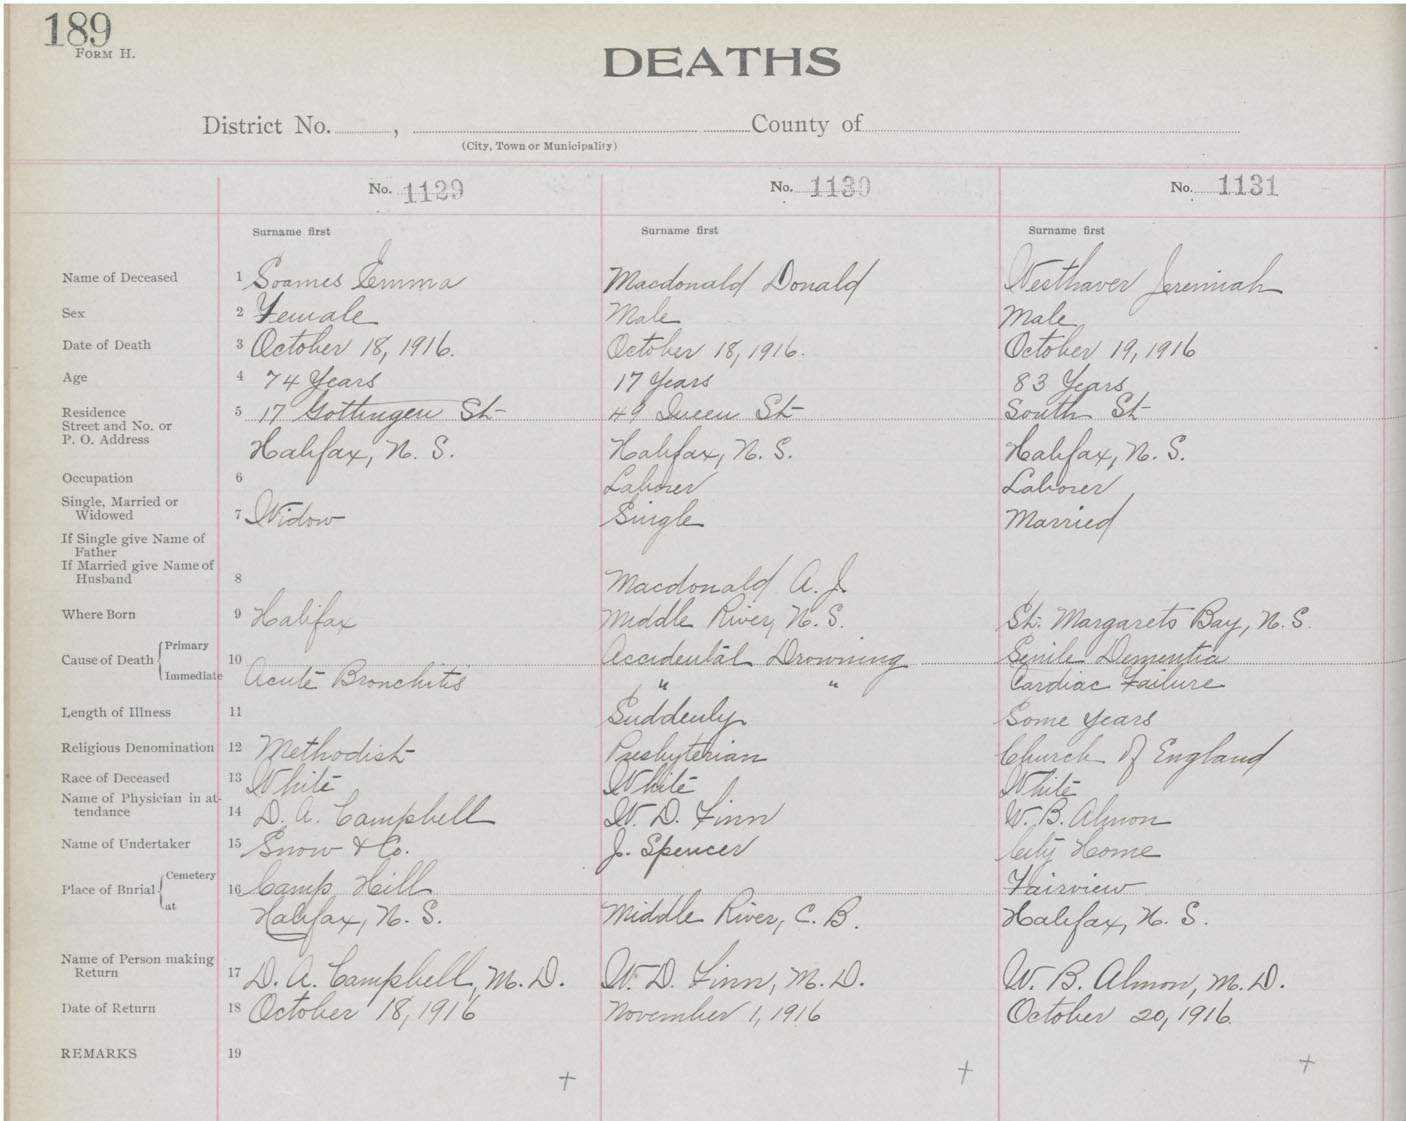 189
FORM H.
DEATHS
District No. , County of
(City, Town or Municipality)
No. 1129 No. 1130 No. 1131
Surname first Surname first Surname first
Name of Deceased 1 Soames Emma Macdonald Donald Westhaver Jeremiah
Sex 2 Female Male Male
Date of Death 3 October 18, 1916. October 18, 1916. October 19, 1916
Age 4 74 Years 17 Years 83 Years
Residence 5 17 Gottingen St 49 Queen St South St
Street and No. or
P. O. Address Halifax, N. S. Halifax, N. S. Halifax, N. S.
Occupation 6 Laborer Laborer
Single, Married or
Widowed 7 Widow Single Married
If Single give Name of
Father
If Married give Name of
Husband 8 Macdonald A. J.
Where Born 9 Halifax Middle River, N. S. St. Margarets Bay, N. S.
Cause of Death Primary 10 Accidental Drowning Senile Dementia
Immediate Acute Bronchitis " " Cardiac Failure
Length of Illness 11 Suddenly Some years
Religious Denomination 12 Methodist Presbyterian Church of England
Race of Deceased 13 White White White
Name of Physician in at-
tendance 14 D. A. Campbell W. D. Finn W. B. Almon
Name of Undertaker 15 Snow & Co. J. Spencer City Home
Place of Bnrial Cemetery 16 Camp Hill Fairview
at Halifax, N. S. Middle River, C. B. Halifax, N. S.
Name of Person making
Return 17 D. A. Campbell, M. D. W. D. Finn, M. D. W. B. Almon, M. D.
Date of Return 18 October 18, 1916 November 1, 1916 October 20, 1916.
REMARKS 19